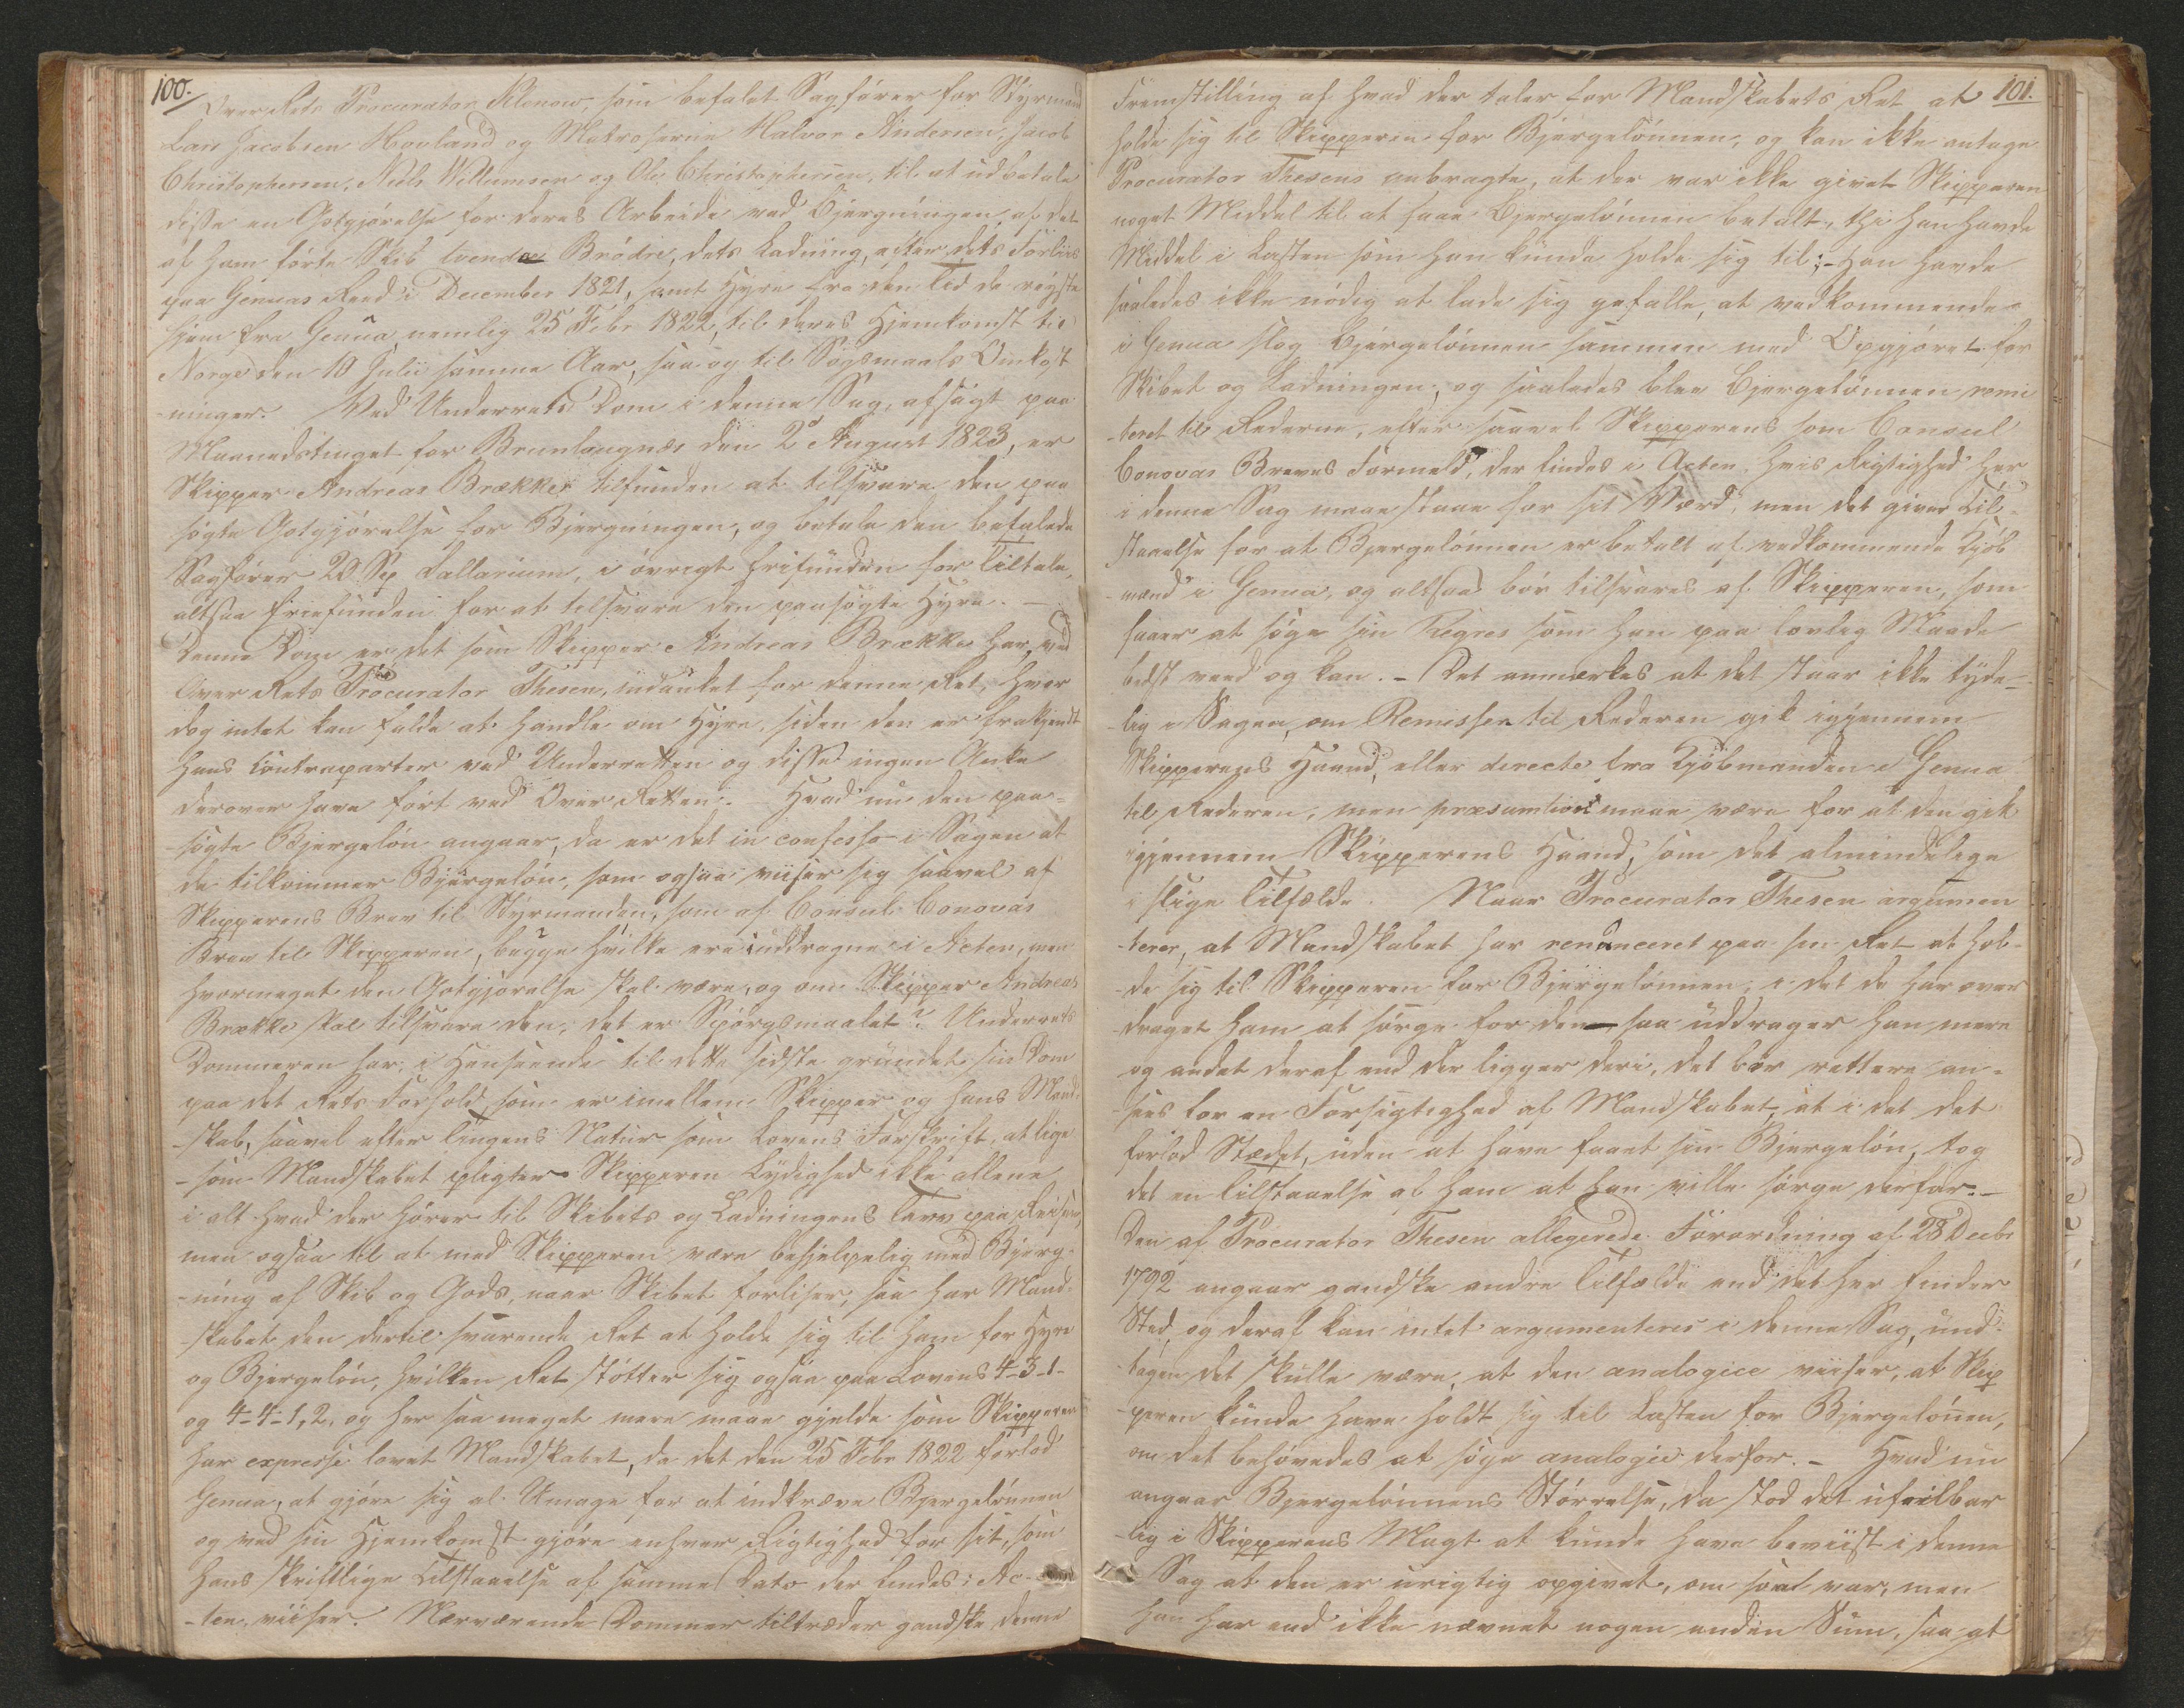 100.
Over Rets Procurator Klonow, som befalet Sagfører for Styrmand
Lars Jacobsen Hovland og Matroserne Halvor Andersen, Jacob
Christophersen, Niels Willumsen og Ole Christophersen, til at udbetale
disse en Godtgjørelse for deres Arbeide ved Bjergningen af det
af ham førte Skib tvende Brødre, dets Ladning, efter dets Forliis
paa Genuas Reed i December 1821, samt Hyre fra den Tid de reyste
hjem fra Genua, nemlig 25 Febr 1822, til deres Hjemkomst til
Norge den 10 Julii samme Aar, saa og til Søgsmaals Omkost
-ninger. Ved Underrets Dom i denne Sag, afsagt paa
Maanedstinget for Brunlaugnæs den 2 August 1823, er
Skipper Andreas Brække tilfunden at tilsvare den paa
søgte Godtgjørelse for Bjergningen, og betale den befalede
Sagfører 20 Sp Sallarium, i øvrigt frifunden for Tiltale,
altsaa friefunden for at tilsvare den paasøgte Hyre. —
Denne Dom er det som Skipper Andreas Brække har, ved
Over Rets Procurator Thesen, indanket for denne Ret, hvor
dog intet kan falde at handle om Hyre, siden den er frakjendt
hans Contraparter ved Underretten og disse ingen Anke
derover have ført ved Over Retten. Hvad nu den paa-
søgte Bjergeløn angaaer, da er det in confesso i Sagen at
de tilkommer Bjergeløn, som ogsaa viiser sig saavel af
Skipperens Brev til Styrmanden, som af Consul Conovas
Brev til Skipperen, begge hvilke ere uddragne i Acten, men
hvormeget den Godtgjørelse skal være, og om Skipper Andreas
Brække skal tilsvare den, det er Spørgsmaalet? Underrets
Dommeren har, i Henseende til dette sidste grundet sin Dom
paa det Rets Forhold som er imellem Skipper og hans Mand-
-skab, saavel efter Tingens Natur som Lovens Forskrift, at lige
-som Mandskabet pligter Skipperen Lydighed ikke allene
i alt hvad der hører til Skibets og Ladningens Tarv paa Reisen,
men ogsaa til at med Skipperen være behjelpelig med Bjerg-
-ning af Skib og Gods, naar Skibet forliser, saa har Mand-
skabet den dertil svarende Ret at holde sig til ham for Hyre
og Bjergeløn, hvilken Ret støtter sig ogsaa paa Lovens 4-3-1-
og 4-4-1,2, og her saa meget mere maae gjelde som Skipperen
har expresse lovet Mandskabet, da det den 25 Febr 1822 forlod
Genua, at gjøre sig al Umage for at indkræve Bjergelønnen
og ved sin Hjemkomst gjøre enhver Rigtighed for sit, som
hans skriftlige Tilstaaelse af samme Dato der findes i Ac-
-ten, viiser. Nærværende Dommer tiltræder gandske denne
101.
Fremstilling af hvad der taler for Mandskabets Ret at
holde sig til Skipperen for Bjergelønnen, og kan ikke antage
Procurator Thesens anbragte, at der var ikke givet Skipperen
noget Middel til at faae Bjergelønnen betalt, thi han havde
Middel i Lasten som han kunde holde sig til; - Han havde
saaledes ikke nødig at lade sig gefalle, at vedkommende
i Genua slog Bjergelønnen sammen med Opgjøret for
Skibet og Ladningen, og saaledes blev Bjergelønnen remi
-teret til Rederne, efter saavel Skipperens som Consul
Conovas Breves Formeld, der findes i Acten, hvis Rigtighed her
i denne Sag maae staae for sit Værd, men det giver Til-
staaelse for at Bjergelønnen er betalt af vedkommende Kjøb
-mand i Genua, og altsaa bør tilsvares af Skipperen, som
faaer at søge sin Regres som han paa lovlig Maade
bedst veed og kan. - Det anmærkes at det staar ikke tyde-
-lig i Sagen, om Remissen til Rederen gik igjennem
Skipperens Haand, eller directe fra Kjøbmanden i Genua
til Rederen, men præsumtion maae være for at den gik
igjennem Skipperens Haand, som det almindelige
i slige Tilfælde. Naar Procurator Thesen argumen
-terer, at Mandskabet har renunceret paa sin Ret at hol-
-de sig til Skipperen for Bjergelønnen, i det de har over
draget ham at sørge for den — saa uddrager han mere
og andet deraf end der ligger deri, det bør rettere an-
-sees for en Forsigtighed af Mandskabet, at i det det
forlod Stædet, uden at have faaet sin Bjergeløn, tog
det en Tilstaaelse af ham at han ville sørge derfor. -
Den af Procurator Thesen allegerede Forordning af 28 Decbr
1792 angaaer gandske andre Tilfælde end det her finder
Sted, og deraf kan intet argumenteres i denne Sag, und-
tagen det skulle være, at den analogice viiser, at Skip
-peren kunde have holdt sig til Lasten for Bjergelønnen,
om det behøvedes at søge analogie derfor. - Hvad nu
angaaer Bjergelønnens Størrelse, da stod det ufeilbar
-lig i Skipperens Magt at kunde have beviist i denne
Sag at den er urigtig opgivet, om saa var, men
han har end ikke nævnet nogen anden Sum, saa at